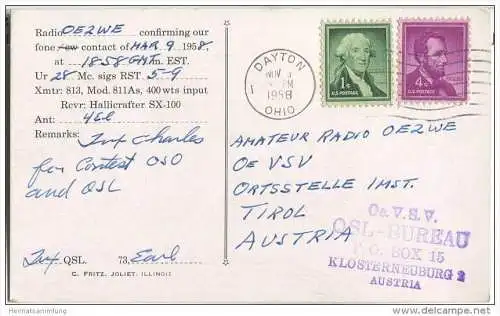 Radio OE2WE confirming our
fone cw contact of MAR. 9 1958.
at 1858 GMT m. EST.
Ur 28 Mc. sigs RST 5-9
Xmtr: 813, Mod. 811As, 400 wts input
Rcvr: Hallicrafter SX-100
Ant: 4el
Remarks: Tnx Charles
for Contest QSO
and QSL
Tnx QSL. 73, Earl
C. FRITZ, JOLIET, ILLINOIS
DAYTON
1
NOV
PM
1958
OHIO
1¢
U.S. POSTAGE
4¢
U.S. POSTAGE
AMATEUR RADIO OE2WE
OE VSV
ORTSSTELLE IMST.
TIROL
AUSTRIA
Oe. V. S. V.
QSL-BUREAU
P. O. BOX 15
KLOSTERNEUBURG 2
AUSTRIA
Heimatsammlung
www.ansichtskartenhandel.de